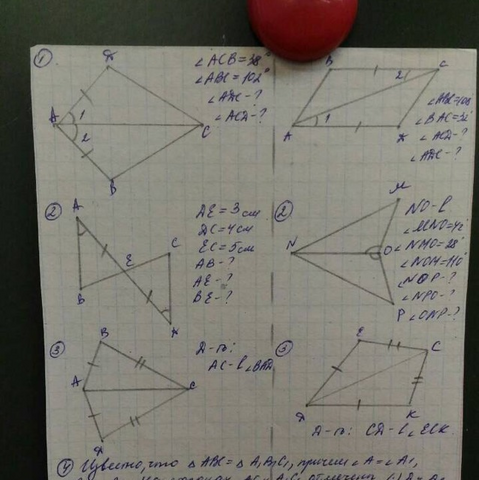 ① Д
∠ACB = 38°
∠ABC = 102°
∠АДС - ?
∠АСД - ?
A 1 2 C
B
B C
2
1
A Д
∠BAC = 32°
∠АСД - ?
∠АДС - ?
② A
B E C
Д
AE = 3 см
ДС = 4 см
EC = 5 см
AB - ?
AE - ?
BE - ?
② M
N O
P
∠MNO = 42°
∠NMO = 28°
∠NOM = 110°
∠NOP - ?
∠NPO - ?
∠ONP - ?
③ B
A C
Д
Д-ть:
AC - b ∠BAД
③ E C
Д K
Д-ть:
СД - b ∠ECK
④ Известно, что △ABC = △A₁B₁C₁, причем ∠A = ∠A₁,